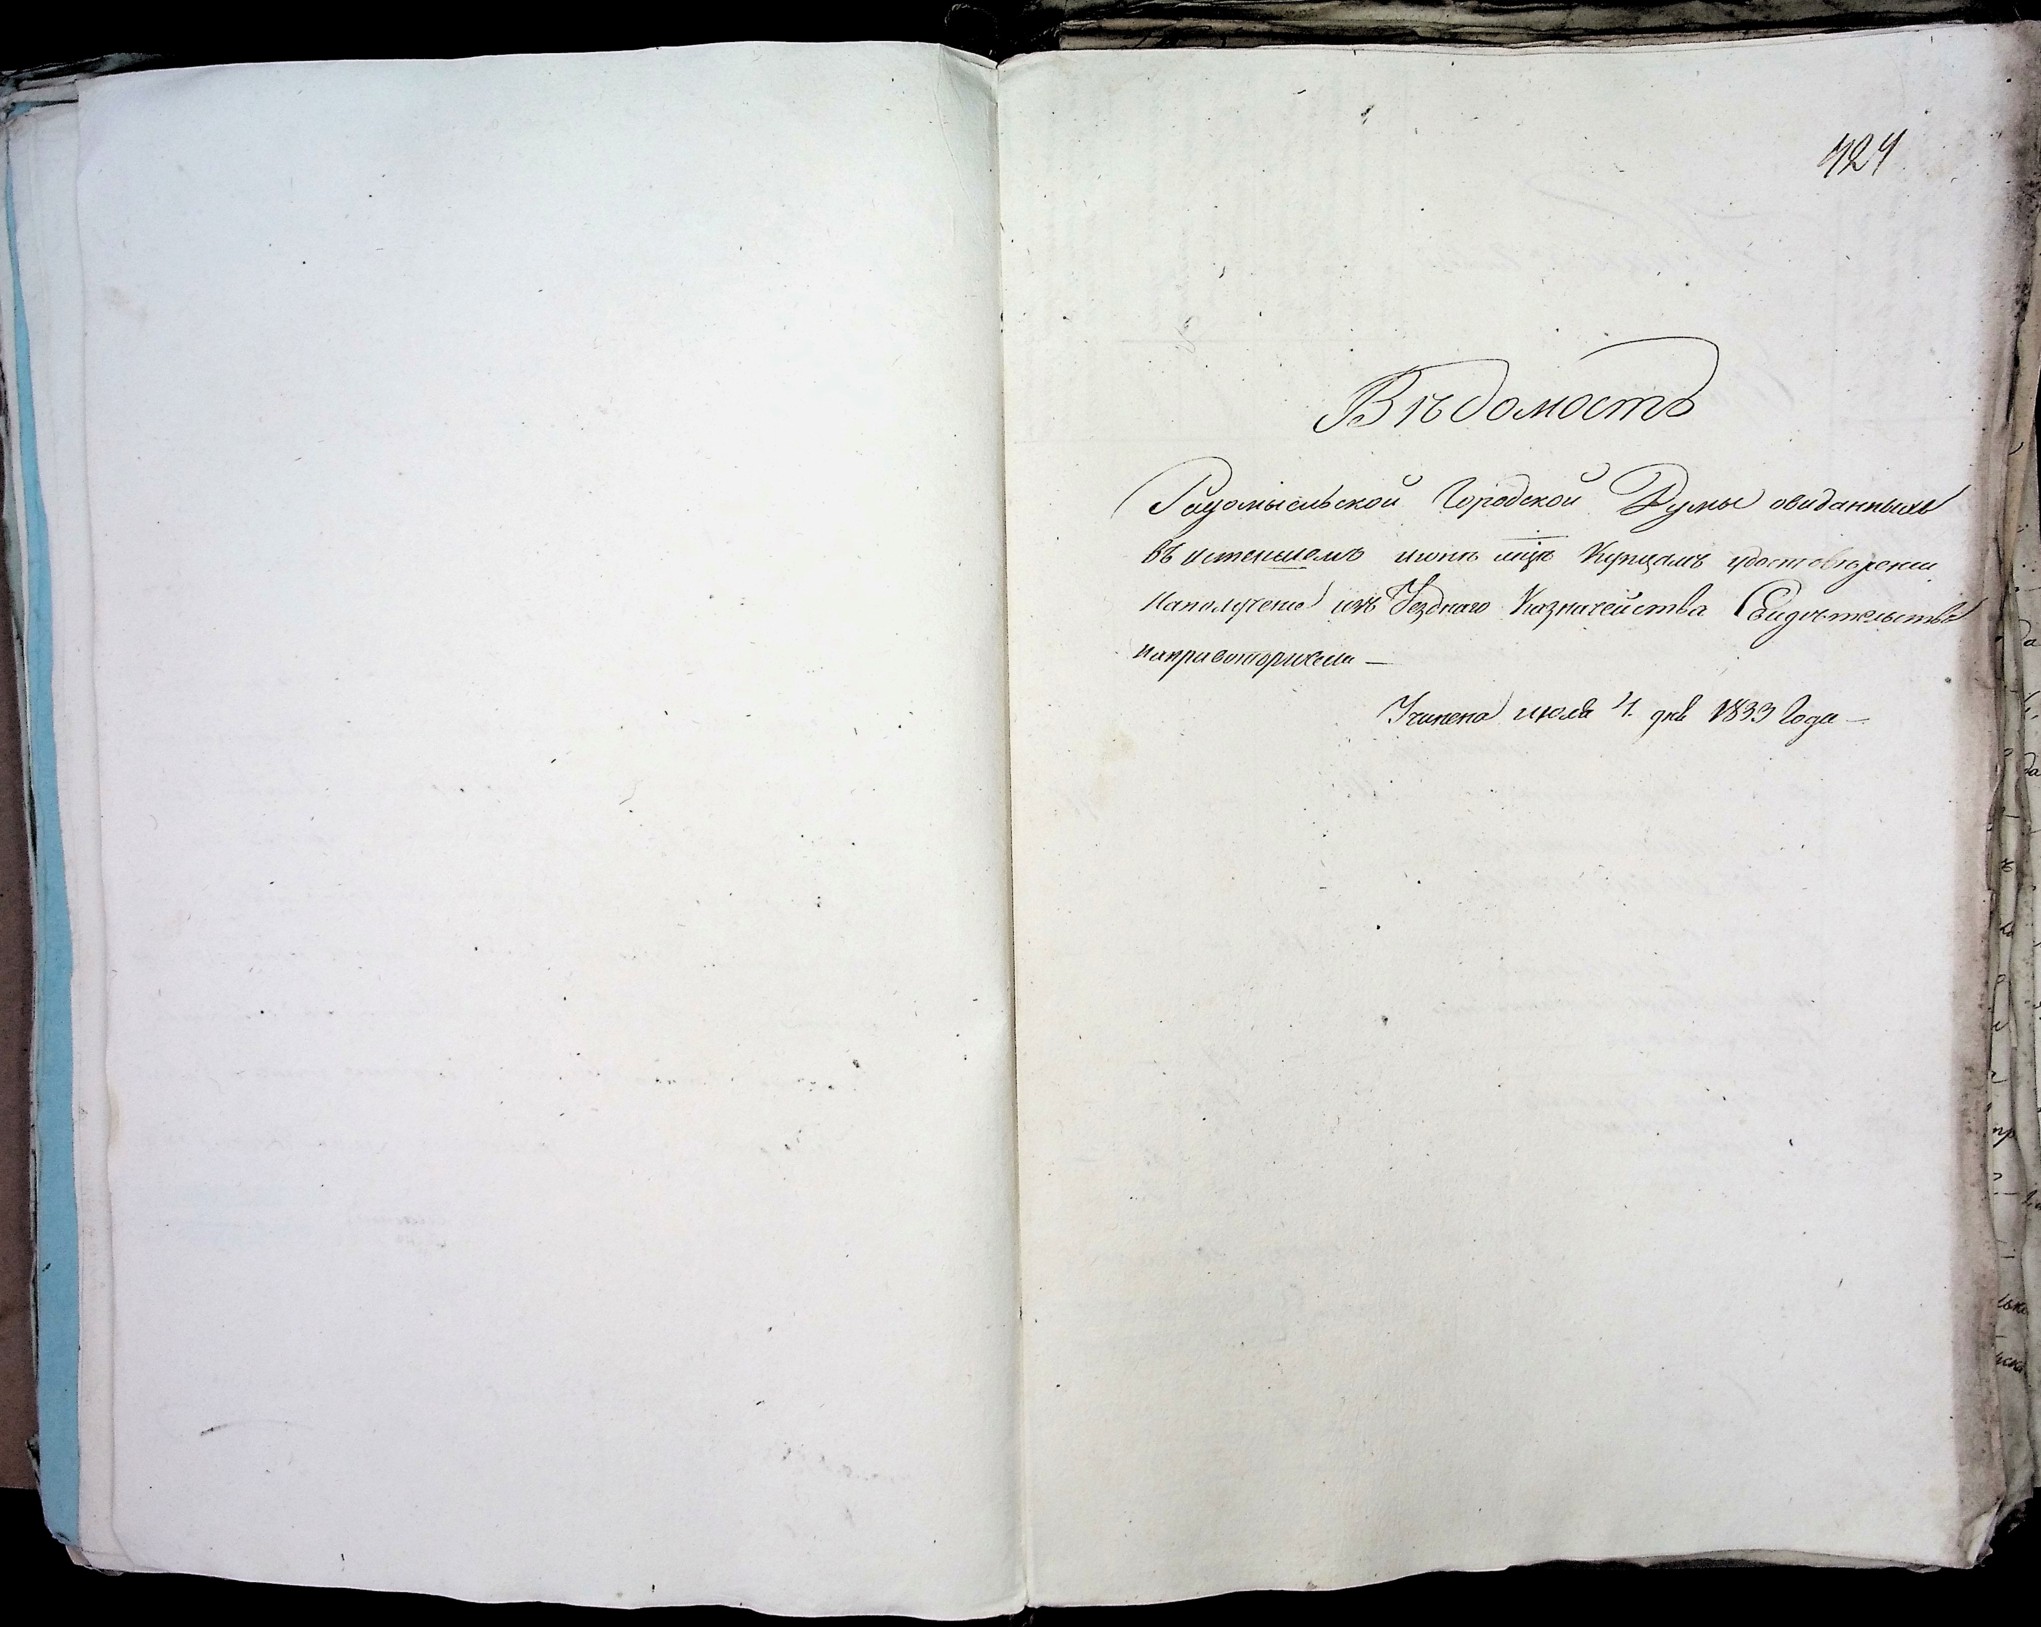 424
Вѣдомость
Радомысльской Городской Думы овиданныхъ
въ истекшемъ июнѣ мцѣ Купцамъ удостоверении
наполучение изъ Уезднаго Казначейства Свидѣтельствъ
направоторговли —
Учинена июля 4. дня 1833 Года —